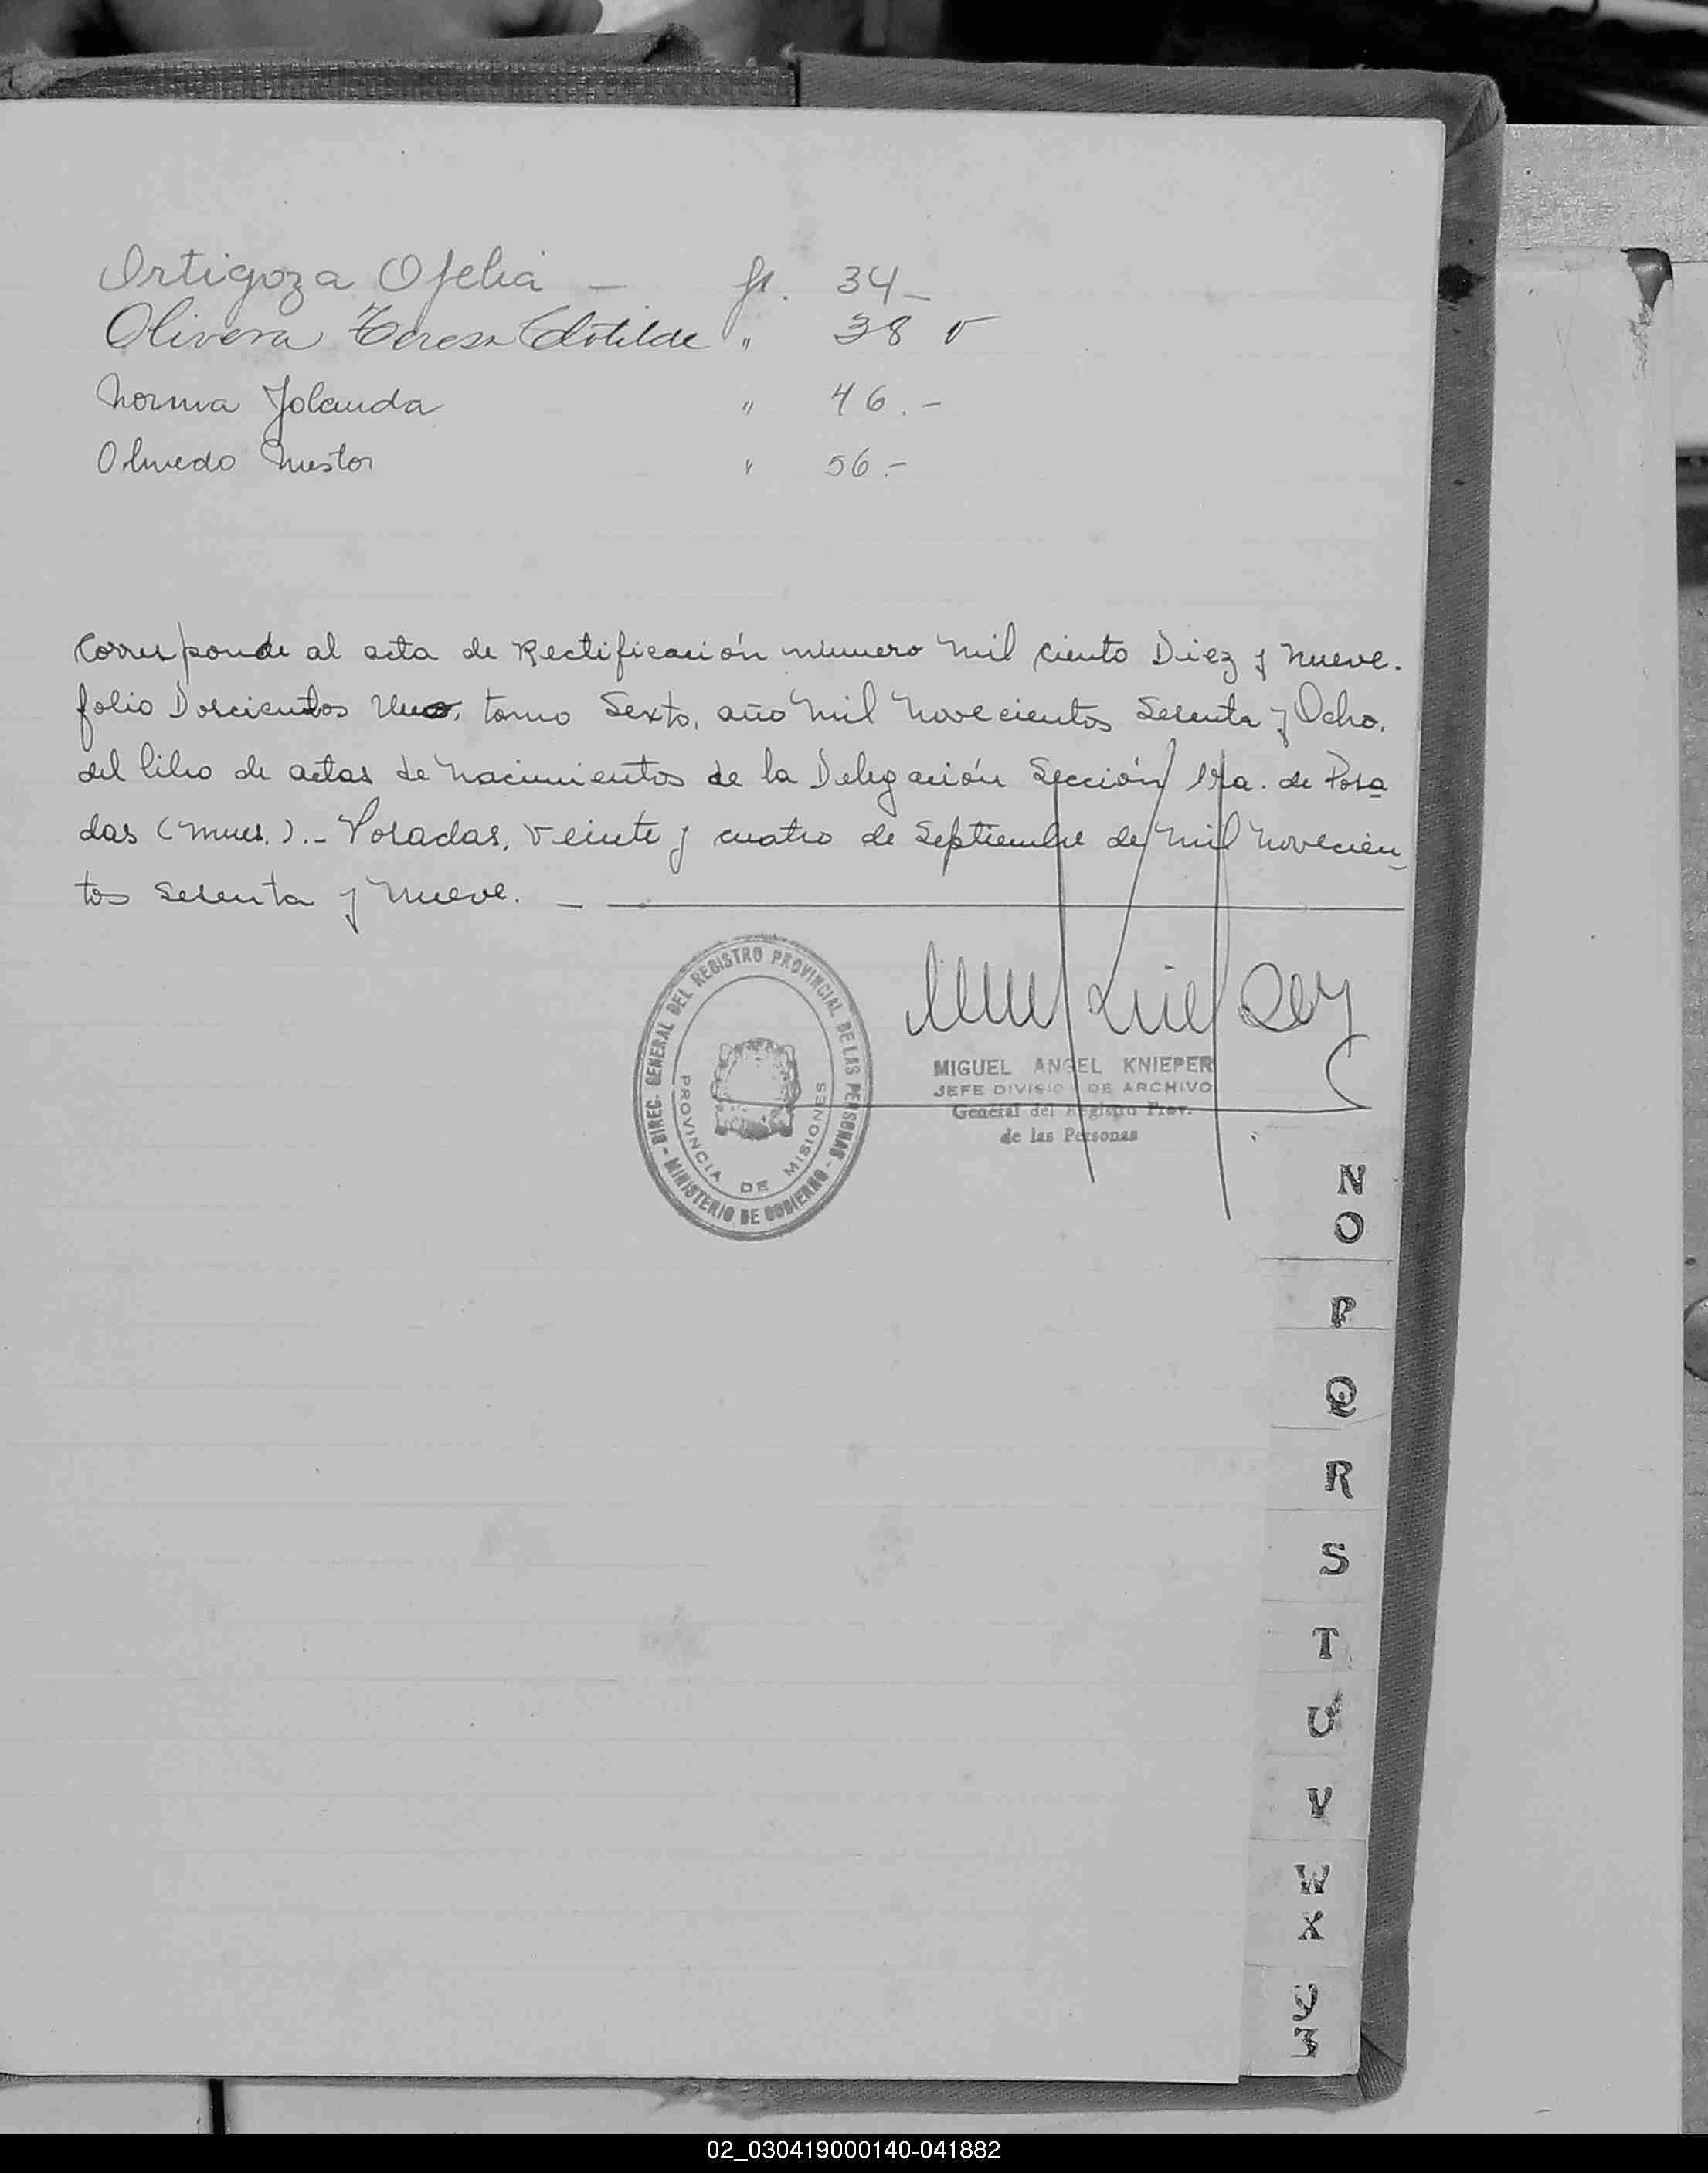 Ortigoza Ofelia — fs. 34 —
Olivera Teresa Clotilde " 38 v
Norma Yolanda " 46.-
Olmedo Nestor " 56.-
Corresponde al acta de Rectificación número mil ciento Diez y nueve.
folio Doscientos Uno, tomo Sexto, año mil novecientos Sesenta y Ocho.
del libro de actas de nacimientos de la Delegación Sección 1ra. de Posa
das (Mnes.).- Posadas, veinte y cuatro de Septiembre de mil novecien
tos sesenta y nueve. —
DIREC. GENERAL DEL REGISTRO PROVINCIAL DE LAS PERSONAS
- MINISTERIO DE GOBIERNO -
PROVINCIA DE MISIONES
MIGUEL ANGEL KNIEPER
JEFE DIVISION DE ARCHIVO
General del Registro Prov.
de las Personas
N
O
P
Q
R
S
T
U
V
W
X
Y
Z
02_030419000140-041882